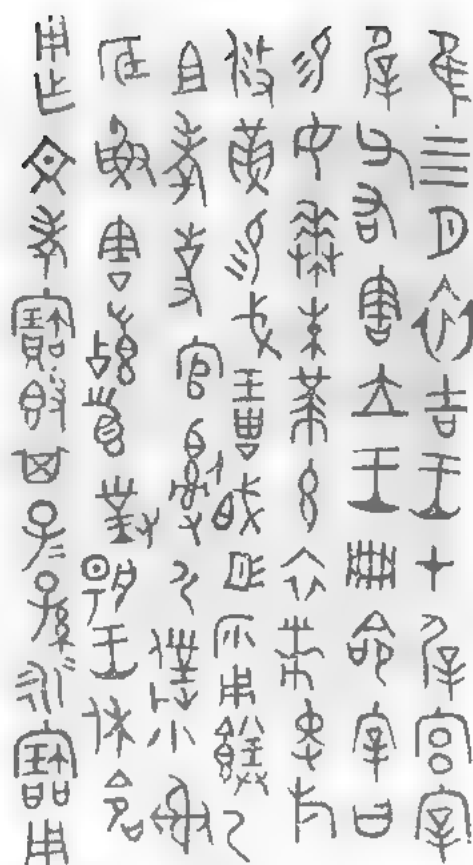 隹四月初吉王才屖宮宰
屖父右害立王冊命害曰
易女朱黃玄衣黹屯㫃
攸革易戈琱彤沙用乃
且考事官𤔲尸僕小射
底魚害𩒨首對揚王休命
用乍文考寶𣪘其子子孫孫永寶用